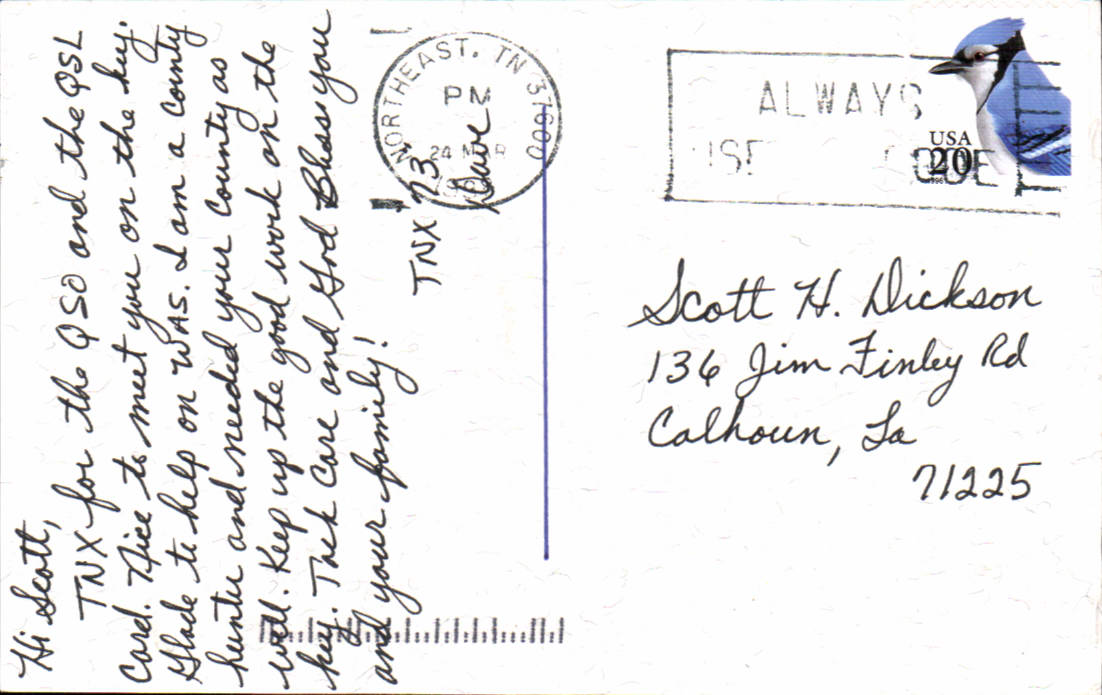 Hi Scott,
TNX for the QSO and the QSL
Card. Nice to meet you on the key.
Glade to help on WAS. I am a county
hunter and needed your County as
well. Keep up the good work on the
key. Tack Care and God Bless you
and your family!
TNX 73
Dave
NORTHEAST, TN 37600
PM
24 MAR
ALWAYS
USE
CODE
USA
20
Scott H. Dickson
136 Jim Finley Rd
Calhoun, La
71225